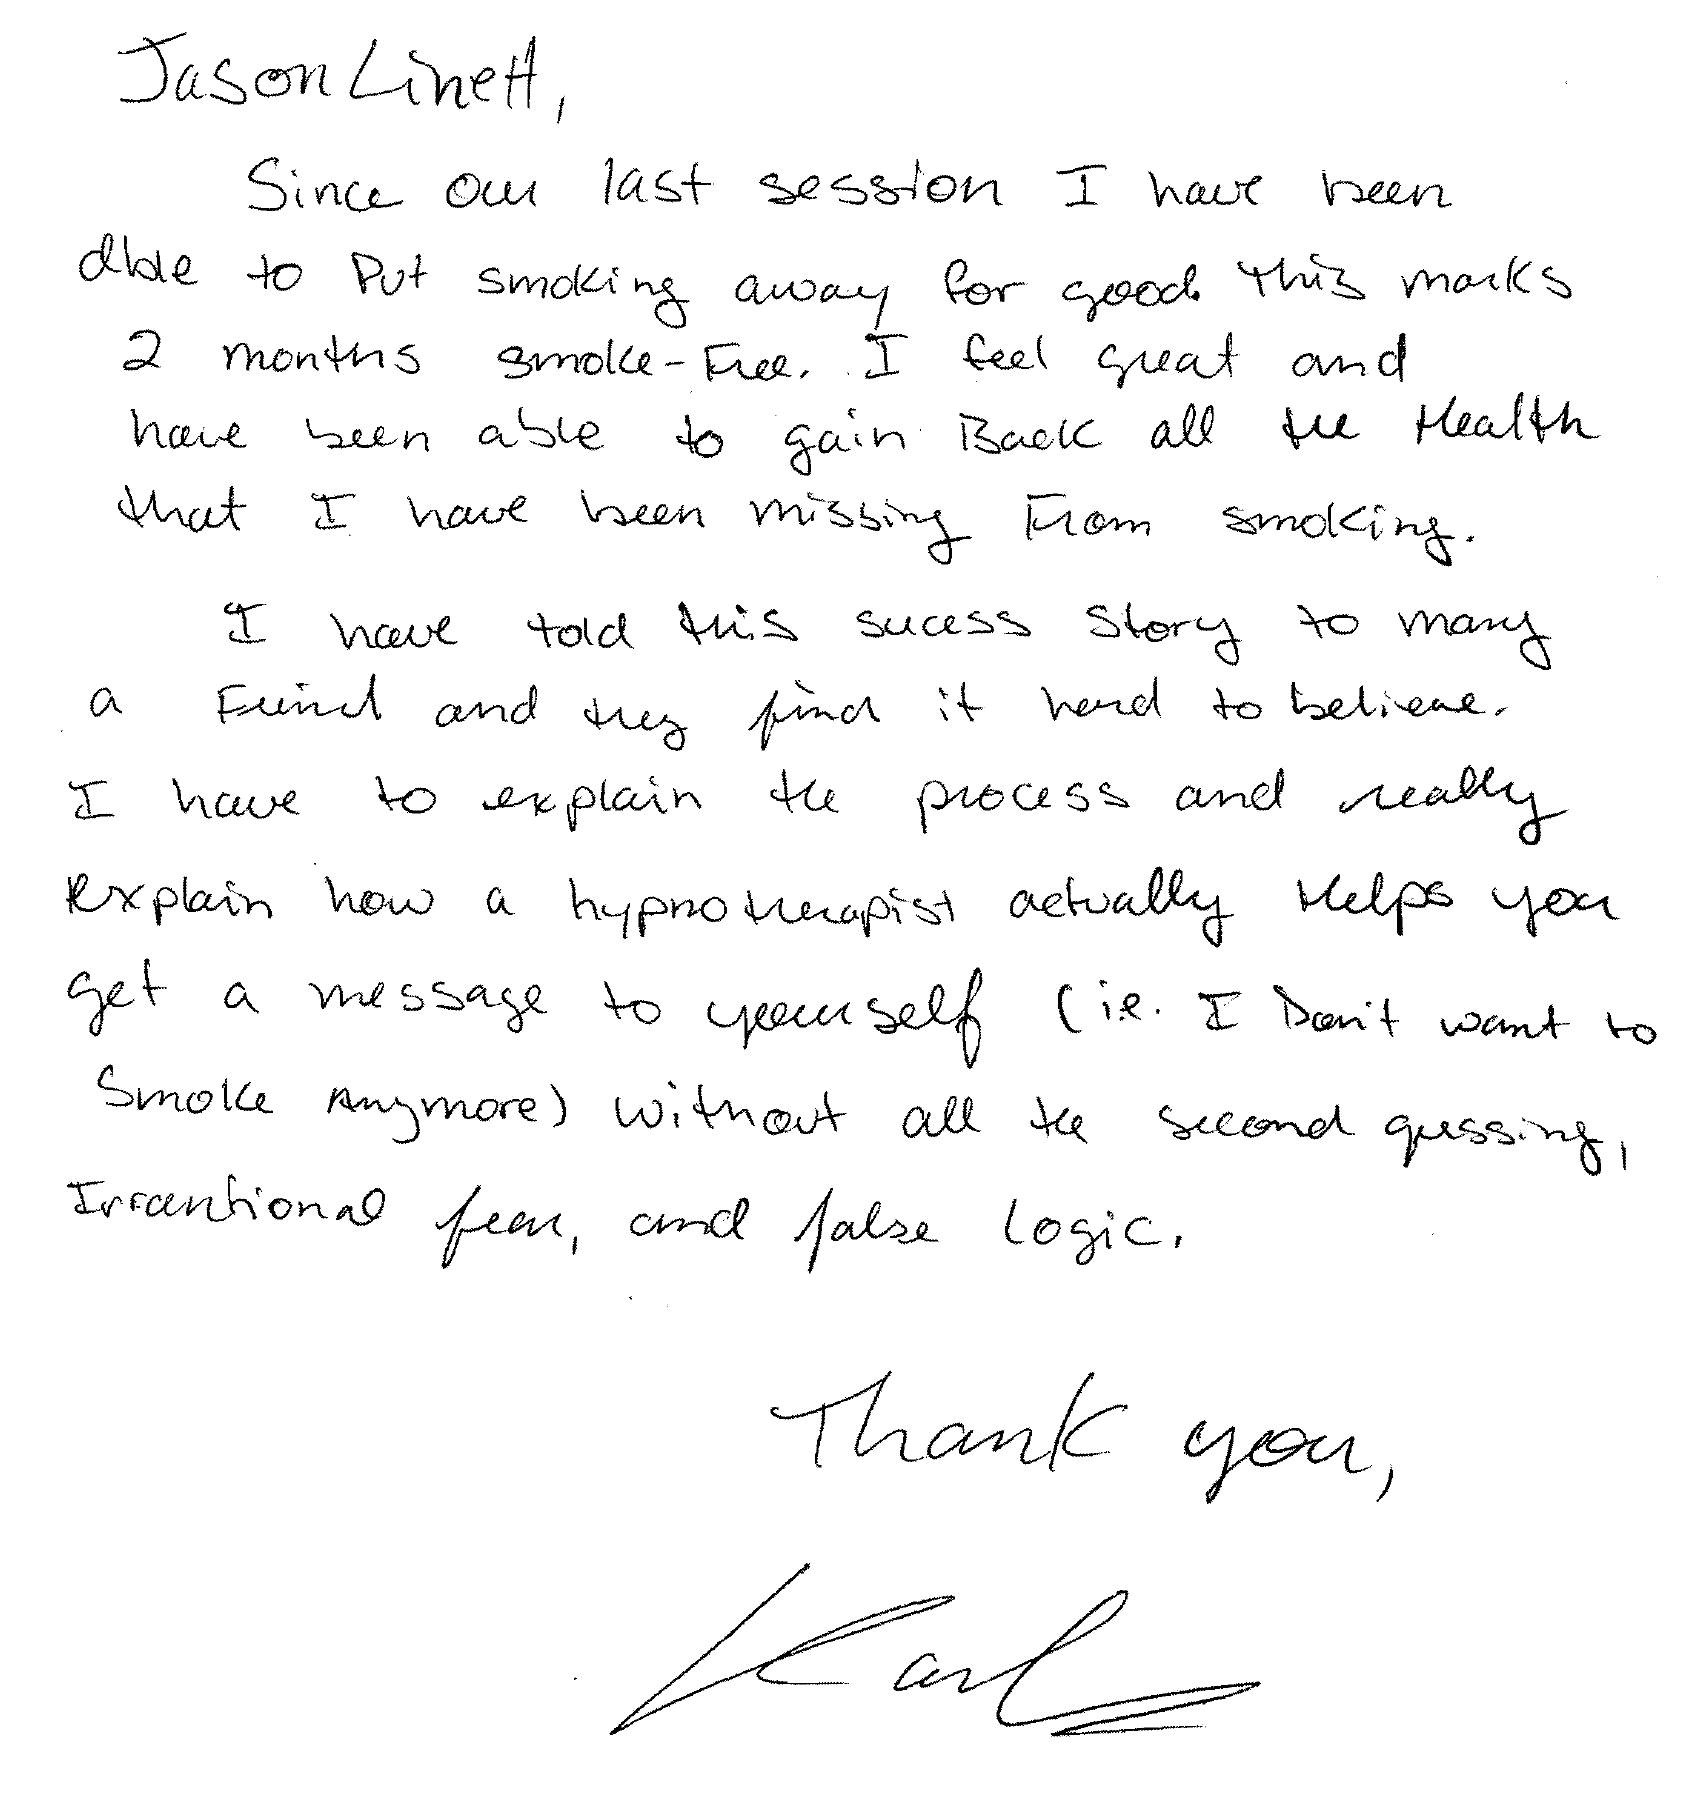 Jason Linett,
Since our last session I have been
able to Put smoking away for good. This marks
2 months smoke-Free. I feel great and
have been able to gain Back all the Health
that I have been missing From smoking.
I have told this sucess story to many
a Freind and they find it hard to believe.
I have to explain the process and really
explain how a hypnotherapist actually Helps you
get a message to yourself (i.e. I Don't want to
Smoke Anymore) without all the second guessing,
Irrantional fear, and false logic.
Thank you,
Karl